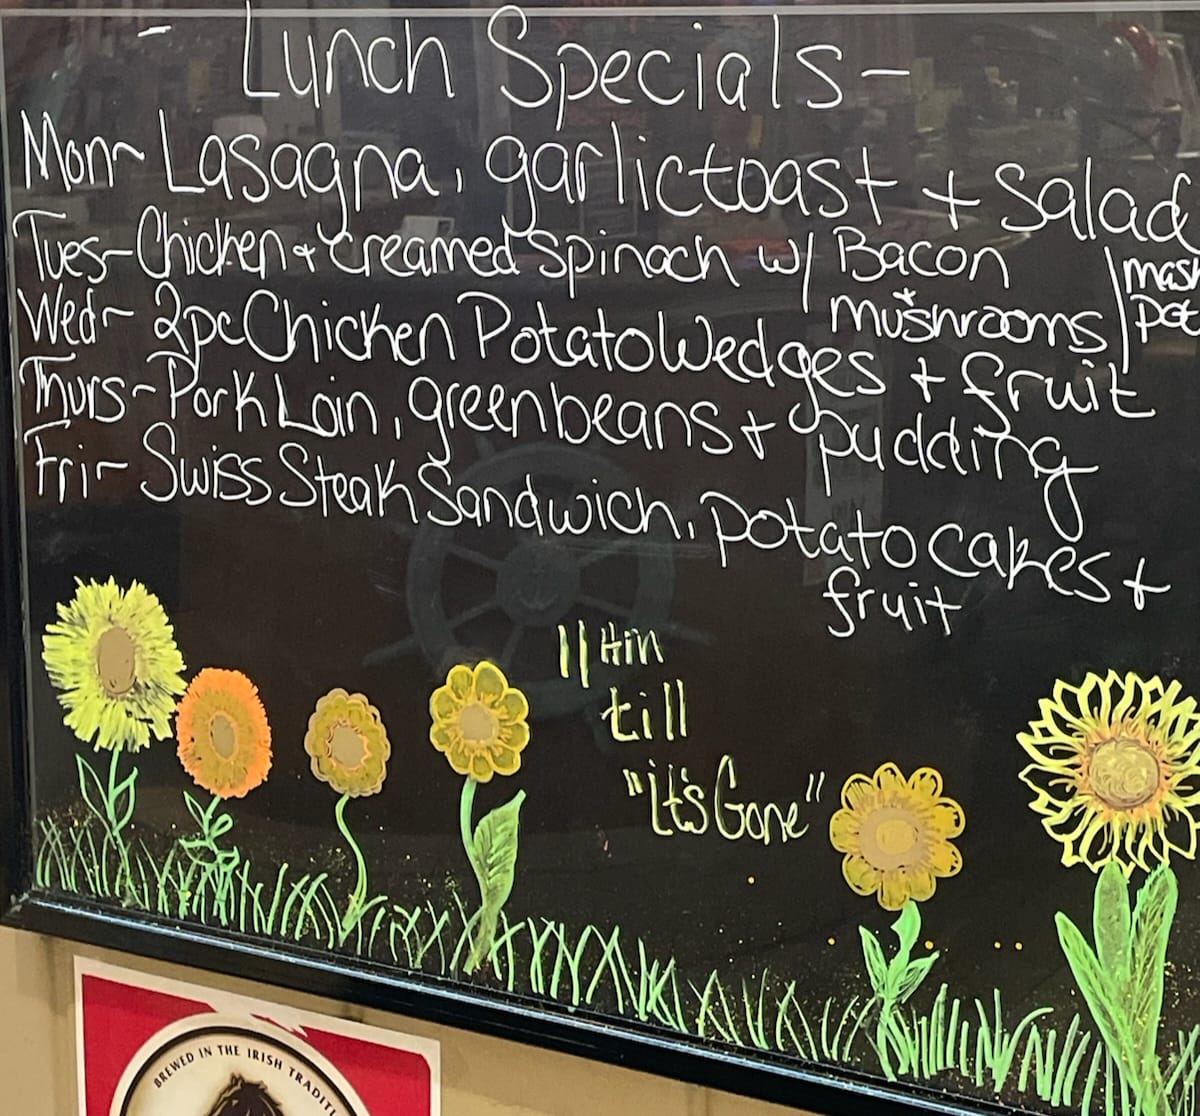 - Lunch Specials -
Mon~ Lasagna, garlic toast + Salad
Tues- Chicken + Creamed Spinach w/ Bacon
mushrooms
Wed~ 2pc Chicken Potato Wedges + fruit
Thurs- Pork Loin, green beans + pudding
Fri~ Swiss Steak Sandwich, potato cakes +
fruit
11 Am
till
"it's Gone"
BREWED IN THE IRISH